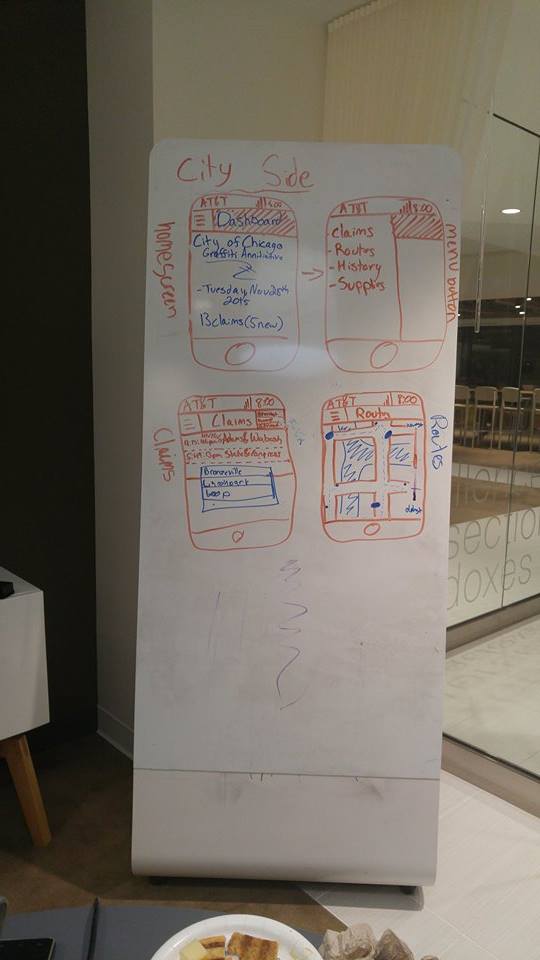 City Side
homescreen
AT&T 8:00
Dashboard
City of Chicago
Graffiti
- Tuesday, Nov 28th
2015
13 claims (5 new)
menu button
AT&T 8:00
Claims
- Routes
- History
- Supplies
Claims
AT&T 8:00
Claims
Adams & Wabash
State & Congress
Bronzeville
Loop
Routes
AT&T 8:00
Routes
section
doxes